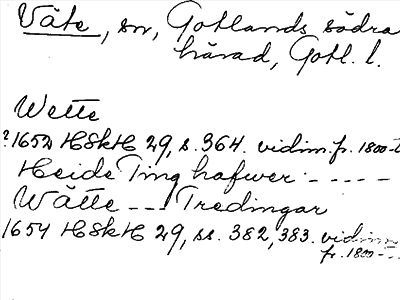 Väte, sn, Gotlands södra
härad, Gotl. l.
Wette
?1652 HSkH 29, s. 364. vidim. fr. 1800-t
Heide Ting hafwer - - - - -
Wätte - - - Tredingar
1654 HSkH 29, ss. 382, 383. vidim
fr. 1800-